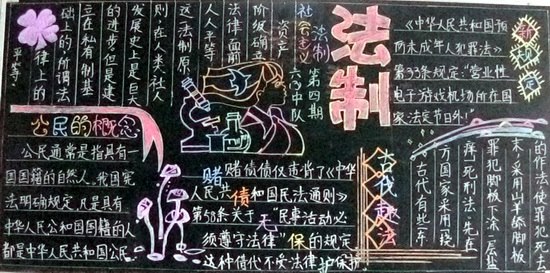 法制
社会主义
法制
第四期
六(3)中队
资产
阶级确立
法律面前
人人平等
这一法制原
则,在人类社会
发展史上是巨大
的进步。但是建
立在私有制基
础上的所谓法
律上的
平等
《中华人民共和国预
防未成年人犯罪法》
第33条规定:“营业性
电子游戏机场所在国
家法定节日外!”
新规定
公民的概念
公民通常是指具有一
国国籍的自然人。我国宪
法明确规定,凡是具有
中华人民共和国国籍的人
都是中华人民共和国公民
赌债无保
赌债债仅违背了《中华
人民共和国民法通则》
第58条关于“民事活动必
须遵守法律”的规定
这种债代不受法律护保护
古代趣法
古代有些东
方国家采用“挠
痒”死刑法,先在
罪犯脚板下涂一层盐
末,采用山羊舔脚板
的作法使罪犯死去